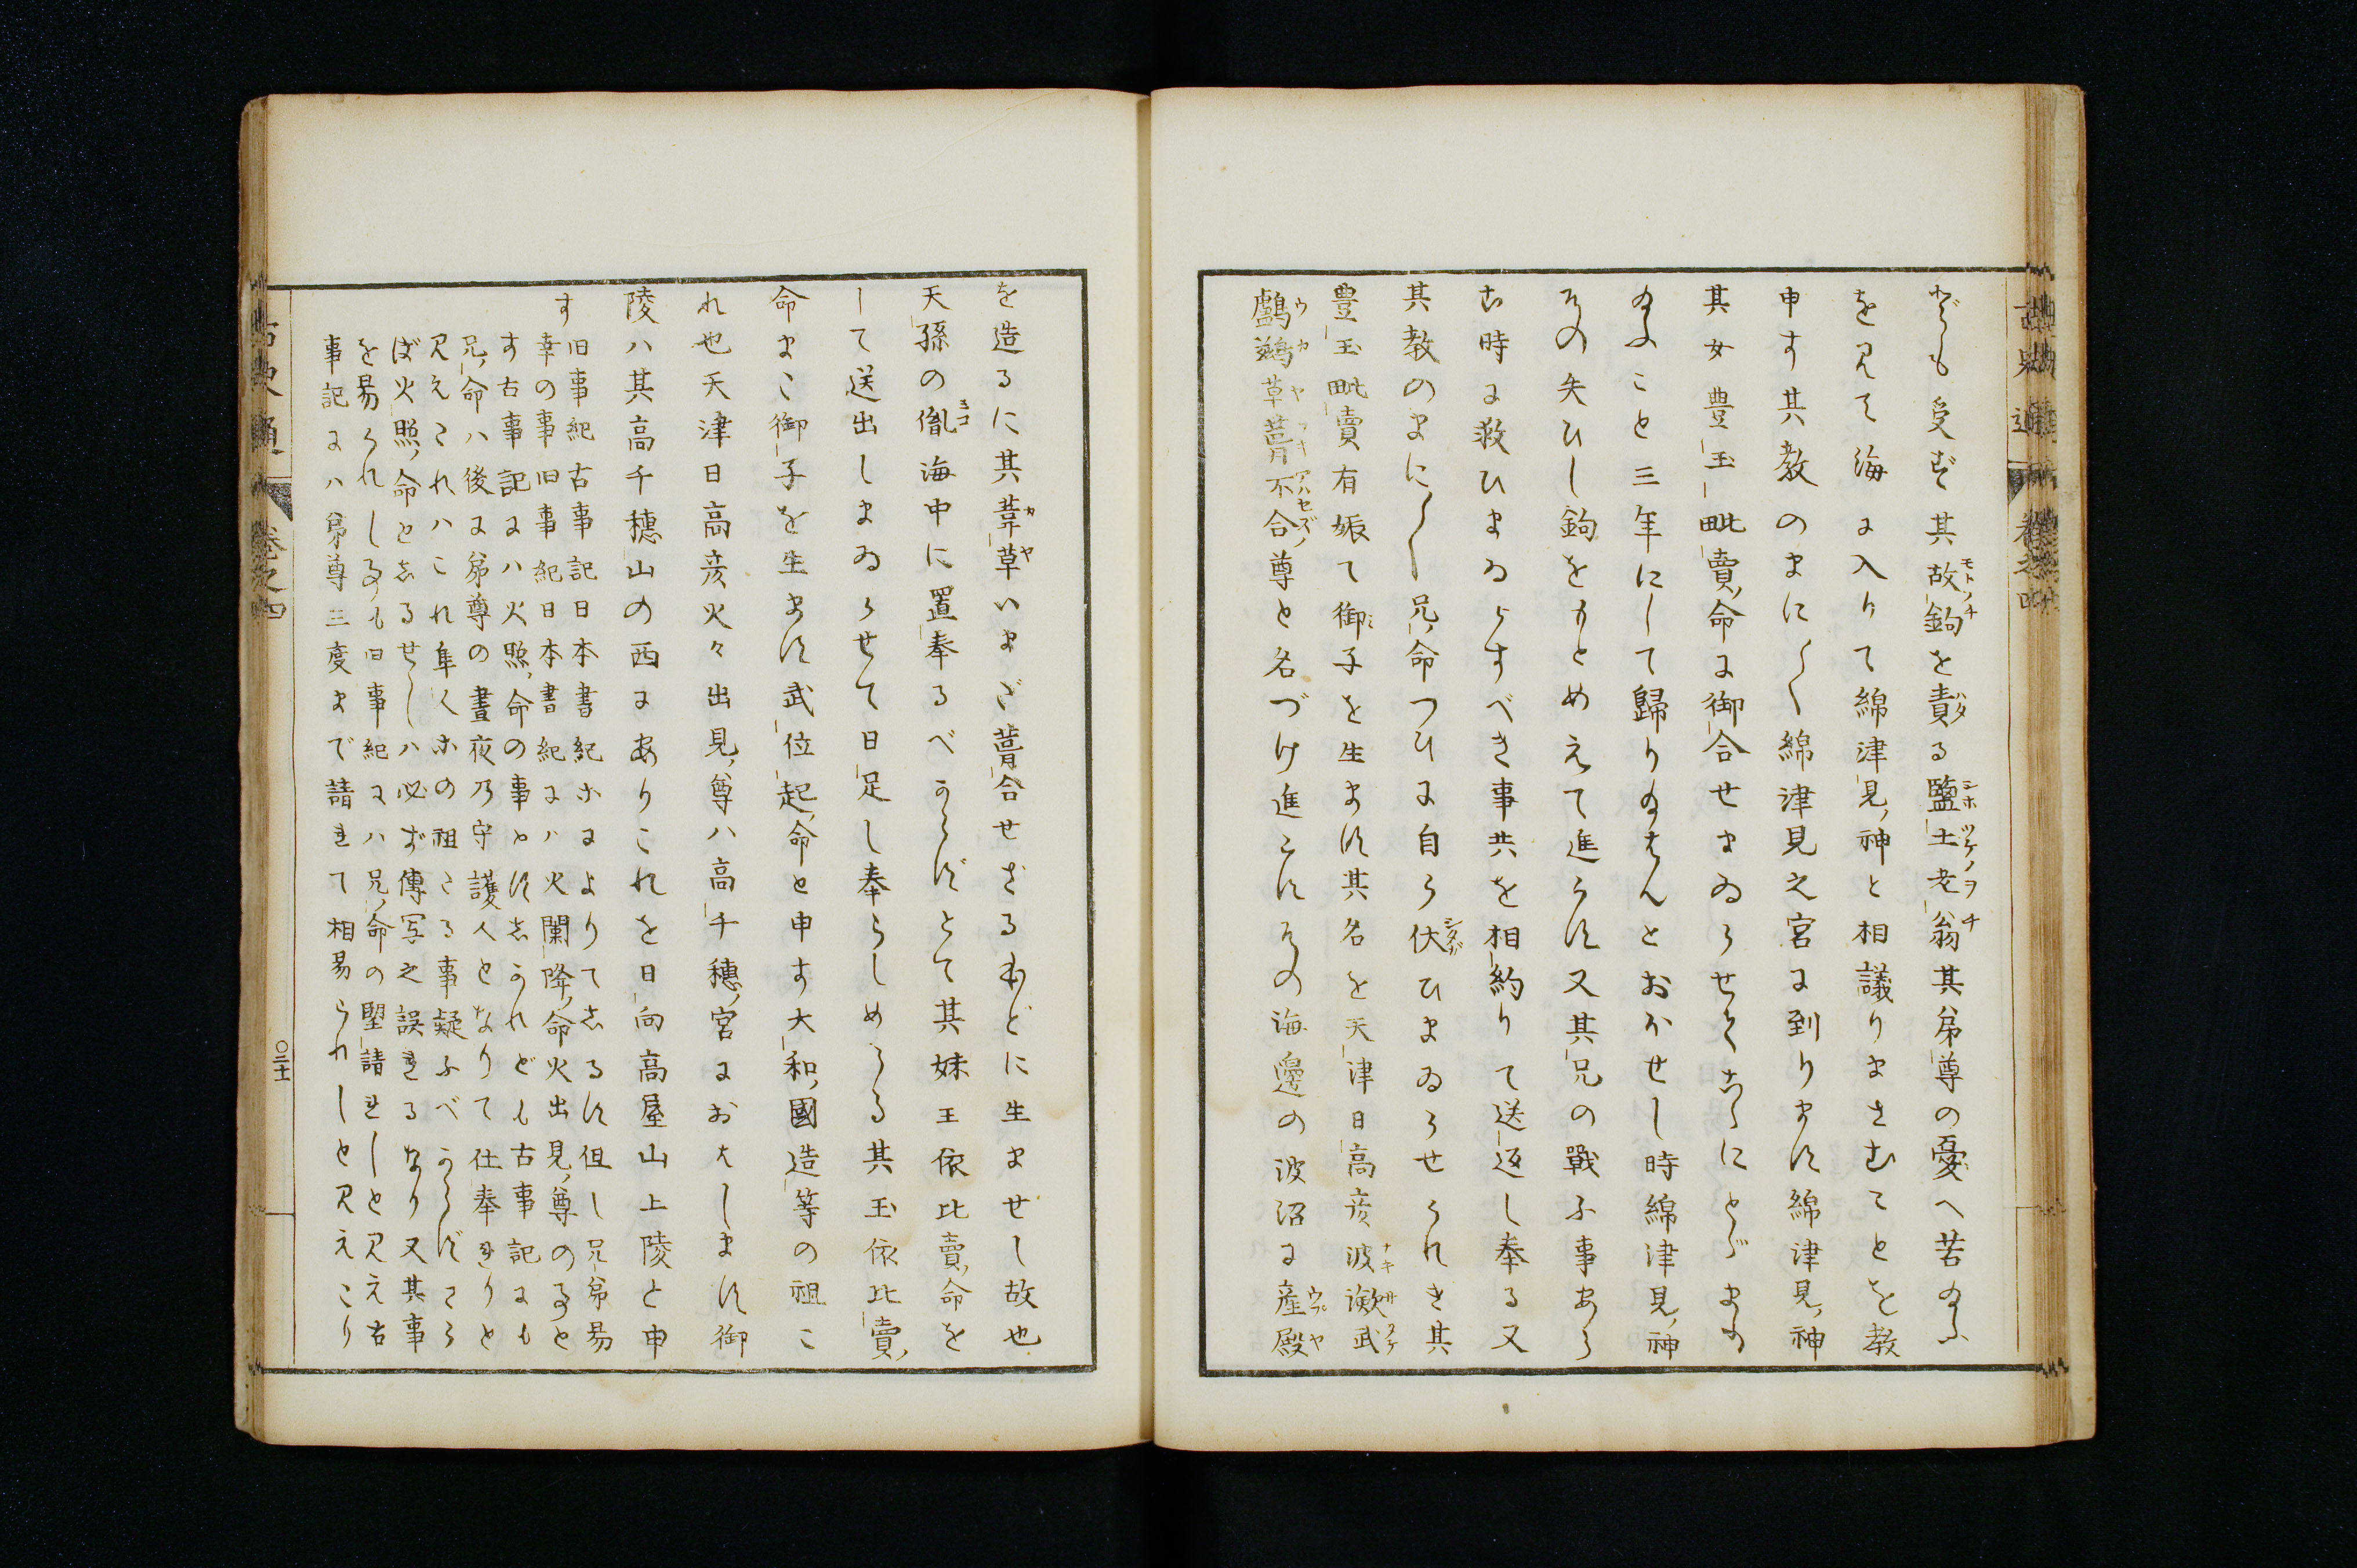 どもも受ず其故鉤を責る鹽土老翁其弟尊の憂へ苦給ふ
を見て海に入りて綿津見神と相議りまさむことを教
申す其教のまに〳〵綿津見之宮に到ります綿津見神
其女豊玉毗賣命に御合せまゐらせてこゝにとゞまり
給ふこと三年にして歸り給はんとおほせし時綿津見神
その失ひし鉤をもとめえて進らす又其兄の戰ふ事あら
む時に救ひまゐらすべき事共を相約りて送返し奉る又
其教のまに〳〵兄命つひに自ら伏ひまゐらせられき其
豊玉毗賣有娠て御子を生ます其名を天津日高彦波瀲武
鸕鷀草葺不合尊と名づけ進らすその海邊の波沼に産殿
を造るに其葺草いまだ葺合せざるほどに生ませし故也
天孫の胤海中に置奉るべからずとて其妹玉依比賣命を
して送出しまゐらせて日足し奉らしめらる其玉依比賣
命また御子を生ます武位起命と申す大和國造等の祖こ
れ也天津日高彦火々出見尊ハ高千穗宮におはします御
陵ハ其高千穗山の西にありこれを日向高屋山上陵と申
す
旧事紀古事記日本書紀等によりてしるす但し兄弟易
幸の事旧事紀日本書紀にハ火闌降命火出見尊の事と
す古事記にハ火照命の事とすしかれども古事記にも
兄命ハ後に弟尊の晝夜乃守護人となりて仕奉れりと
見えたれハこれ隼人等の祖たる事疑ふべからずさら
ば火照命としるせしハ必ず傳写之誤れるなり又其事
を易られし事も旧事紀にハ兄命の堅請れしと見え古
事記にハ弟尊三度まで請れて相易られしと見えたり
古史通
卷之四
〇三十